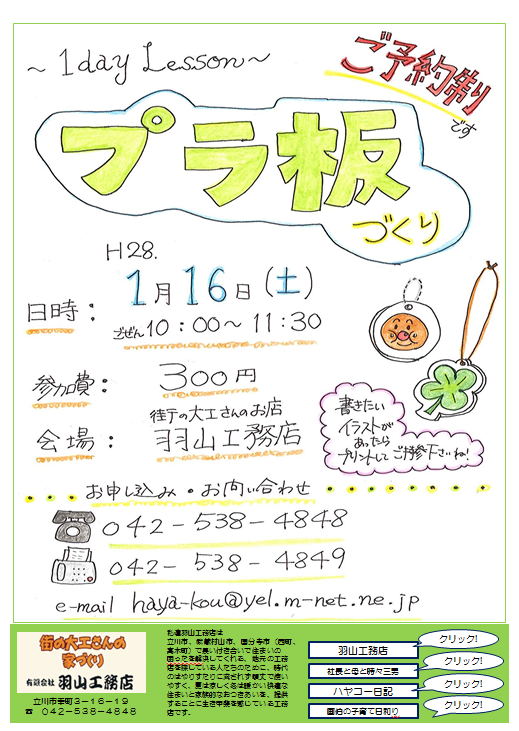 ~ 1day Lesson ~
ご予約制
です
プラ板
づくり
H28.
日時: 1月16日(土)
ごぜん10:00~11:30
参加費: 300円
街の大工さんのお店
会場: 羽山工務店
書きたい
イラストが
あったら
プリントして
ご持参下さいね!
お申し込み・お問い合わせ
042-538-4848
042-538-4849
e-mail haya-kou@yel.m-net.ne.jp
街の大工さんの
家づくり
有限会社 羽山工務店
立川市幸町3-16-19
☎ 042-538-4848
私達羽山工務店は
立川市、武蔵村山市、国分寺市(西町、
高木町)で長い付き合いで住まいの
困ったを解決してくれる、地元の工務
店を探している人たちのために、時代
のはやりすたりに流されず頑丈で使い
やすく、夏は涼しく冬は暖かい快適な
住まいと家族的なおつきあいを、提供
することに生き甲斐を感じている工務
店です。
羽山工務店
クリック!
社長と母と時々三男
クリック!
ハヤコー日記
クリック!
画伯の子育て日和り
クリック!